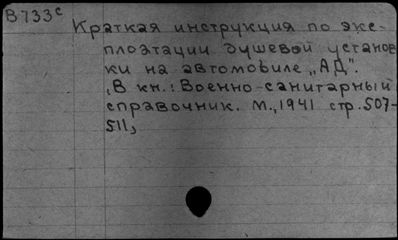 В733с
Краткая инструкция по экс-
плоатации душевой установ
ки на автомобиле „АД".
(В кн.: Военно-санитарный
справочник. М., 1941 стр. 507-
511)